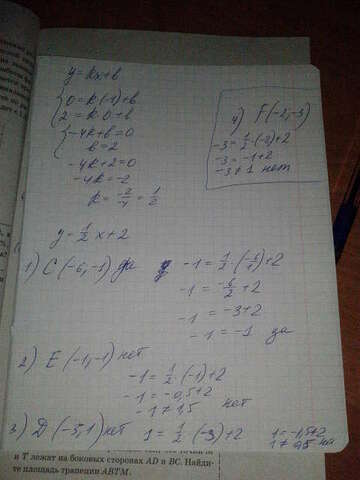 y=kx+b
0=k·(-1)+b
2=k·0+b
-4k+b=0
b=2
-4k+2=0
-4k=-2
k=-2/-4=1/2
y=1/2x+2
1) C(-6,-1) да
-1=1/2·(-6/1)+2
-1=-6/2+2
-1=-3+2
-1=-1 да
2) E(-1,-1) нет
-1=1/2·(-1)+2
-1=-0,5+2
-1≠1,5 нет
3) D(-3,1) нет 1=1/2·(-3)+2
1=-1,5+2
1≠0,5
4) F(-2,-3)
-3=1/2·(-2)+2
-3=-1+2
-3≠1 нет
и T лежат на боковых сторонах AD и BC. Найди-
те площадь трапеции ABTM.